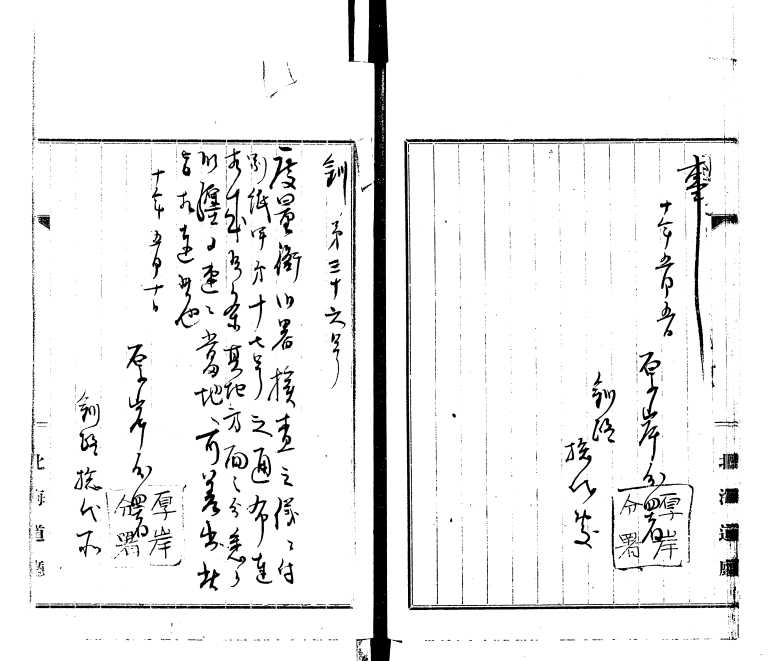 十年五月五日
厚岸分署
釧路
総代
厚岸
分署
北海道廳
釧第三十六号
度量衡御署検査之儀ニ付
別紙甲方十七号之通布達
相成候条其地方面之分悉ク
取纒メ速ニ当地ヘ可差出此
旨相達候也
十年五月十日
厚岸分署
釧路総代
厚岸
分署
北海道廳